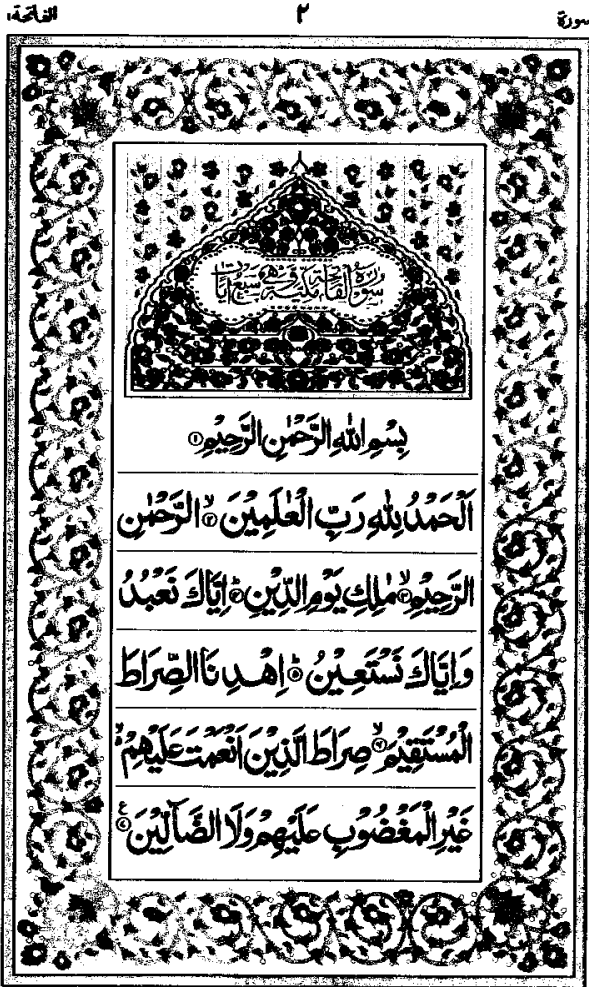 سورة ٢ الفاتحة١
سورة الفاتحة مكية وهي سبع آيات
بِسْمِ اللهِ الرَّحْمٰنِ الرَّحِيْمِ ۝١
اَلْحَمْدُ لِلّٰهِ رَبِّ الْعٰلَمِيْنَ ۙ۝٢ الرَّحْمٰنِ
الرَّحِيْمِ ۙ۝٣ مٰلِكِ يَوْمِ الدِّيْنِ ؕ۝٤ اِيَّاكَ نَعْبُدُ
وَاِيَّاكَ نَسْتَعِيْنُ ؕ۝٥ اِهْدِنَا الصِّرَاطَ
الْمُسْتَقِيْمَ ۙ۝٦ صِرَاطَ الَّذِيْنَ اَنْعَمْتَ عَلَيْهِمْ ۙ
غَيْرِ الْمَغْضُوْبِ عَلَيْهِمْ وَلَا الضَّآلِّيْنَ ۝٧ ع